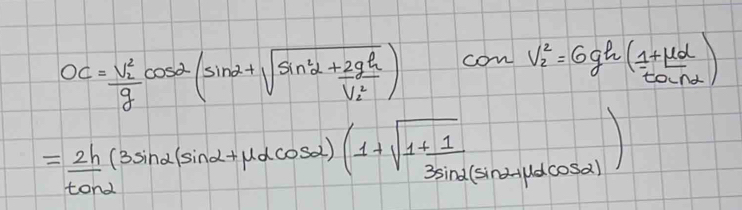 OC = V₂²/g cosα (sinα + √(sin²α + 2gh/V₂²)) con V₂² = 6gh (1 + μd/tanα)
= 2h/tanα (3sinα(sinα + μd cosα) (1 + √(1 + 1/3sinα(sinα + μd cosα)))